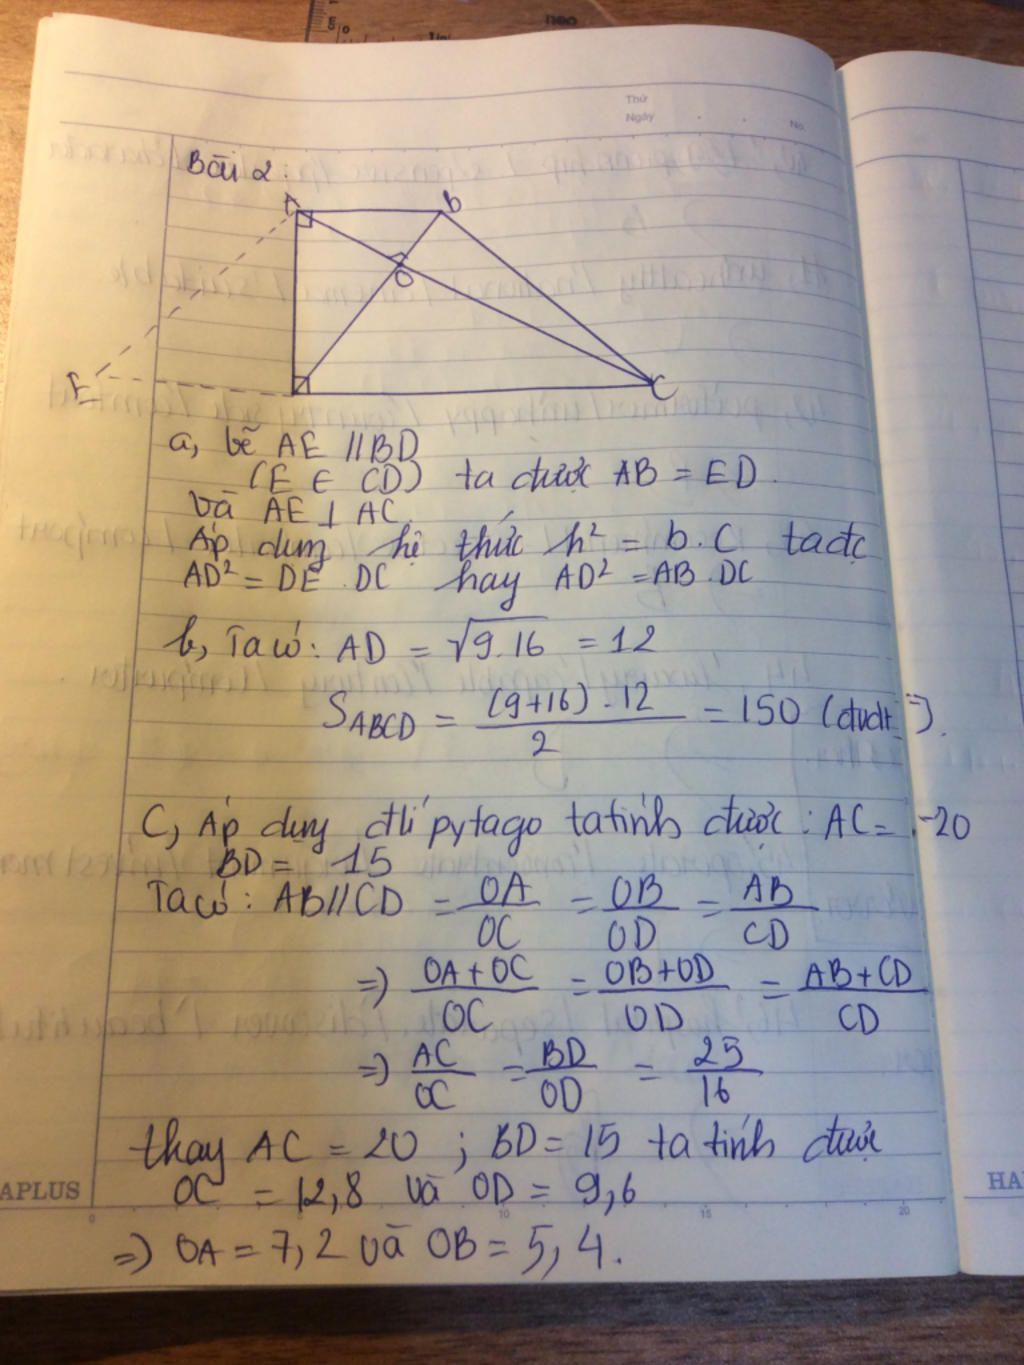 neo
5
Thứ
Ngày
No.
Bài 2:
A
B
O
E
C
a, kẽ AE // BD
(E ∈ CD) ta được AB = ED.
và AE ⊥ AC.
Áp dụng hệ thức h² = b.C ta đc
AD² = DE . DC hay AD² = AB . DC
b, Ta có: AD = √9.16 = 12
S_ABCD = (9+16) . 12 / 2 = 150 (đvdt).
C, Áp dụng đlí pytago ta tính được: AC = 20
BD = 15
Ta có: AB // CD = OA/OC = OB/OD = AB/CD
=> OA+OC/OC = OB+OD/OD = AB+CD/CD
=> AC/OC = BD/OD = 25/16
thay AC = 20 ; BD = 15 ta tính được
OC = 12,8 và OD = 9,6
=> OA = 7,2 và OB = 5,4.
APLUS
0
10
15
20
HA